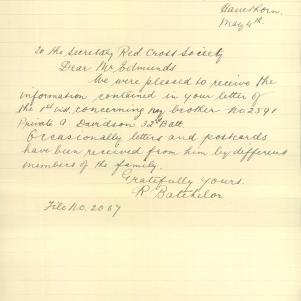 Hawthorn.
May 4th.
To the Secretary Red Cross Society
Dear Mr Edmunds
We were pleased to receive the
information contained in your letter of
the 1st inst, concerning my brother No 2591
Private A. Davidson, 32nd Batt.
Occasionally letters and postcards
have been received from him by different
members of the family.
Gratefully Yours.
R Batchelor
File No. 2067